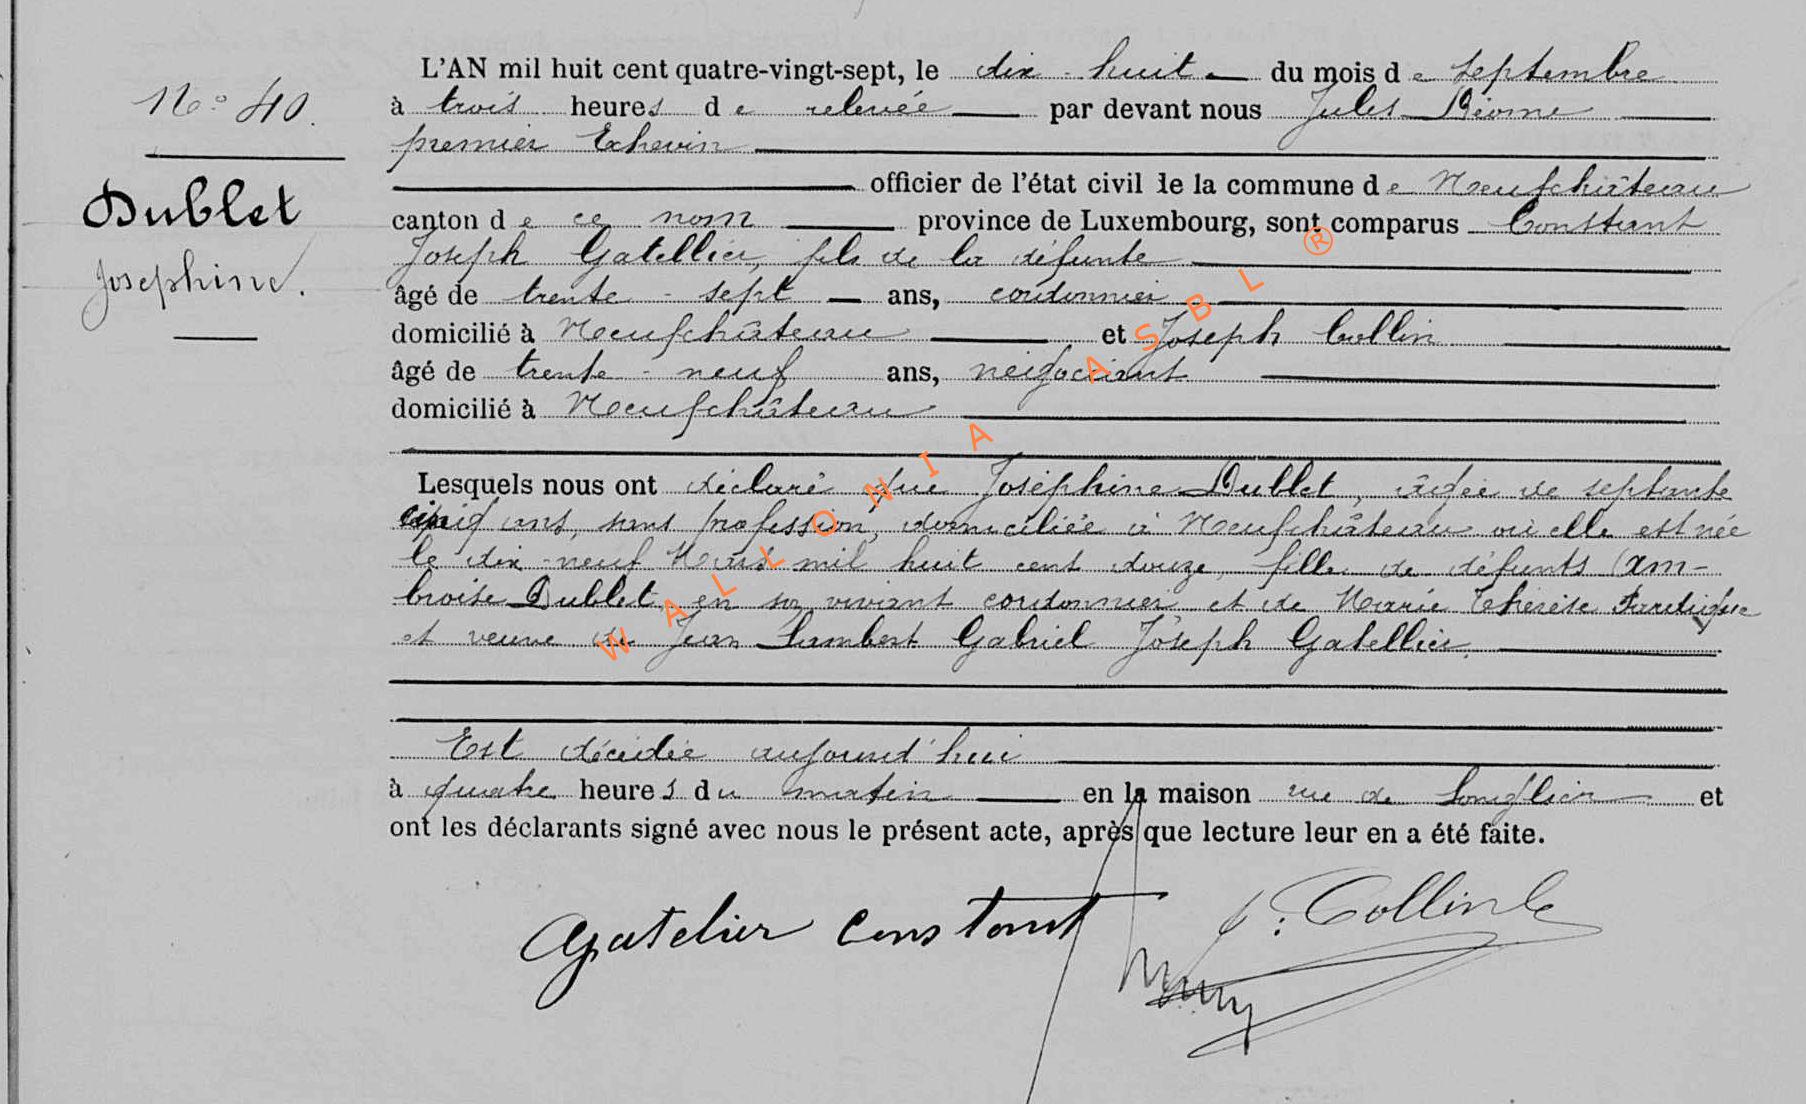 L'AN mil huit cent quatre-vingt-sept, le dix-huit du mois de septembre
No 40.
à trois heures de relevée par devant nous Jules
premier Echevin
officier de l'état civil de la commune de Neufchâteau
Dublet
canton de ce nom province de Luxembourg, sont comparus Constant
Joséphine.
Joseph Gatellier, fils de la défunte
âgé de trente-sept ans, cordonnier
domicilié à Neufchâteau et Joseph Collin
âgé de trente-neuf ans, négociant
domicilié à Neufchâteau
Lesquels nous ont déclaré que Joséphine Dublet, âgée de septante
cinq ans, sans profession, domiciliée à Neufchâteau où elle est née
le dix-neuf Mars mil huit cent douze, fille de défunts Am-
broise Dublet, en son vivant cordonnier et de Marie Thérèse
et veuve de Jean Lambert Gabriel Joseph Gatellier.
Est décédée aujourd'hui
à quatre heures du matin en la maison rue de Longlier et
ont les déclarants signé avec nous le présent acte, après que lecture leur en a été faite.
Gatelier Constant
J. Collin
WALLONIA ASBL ®